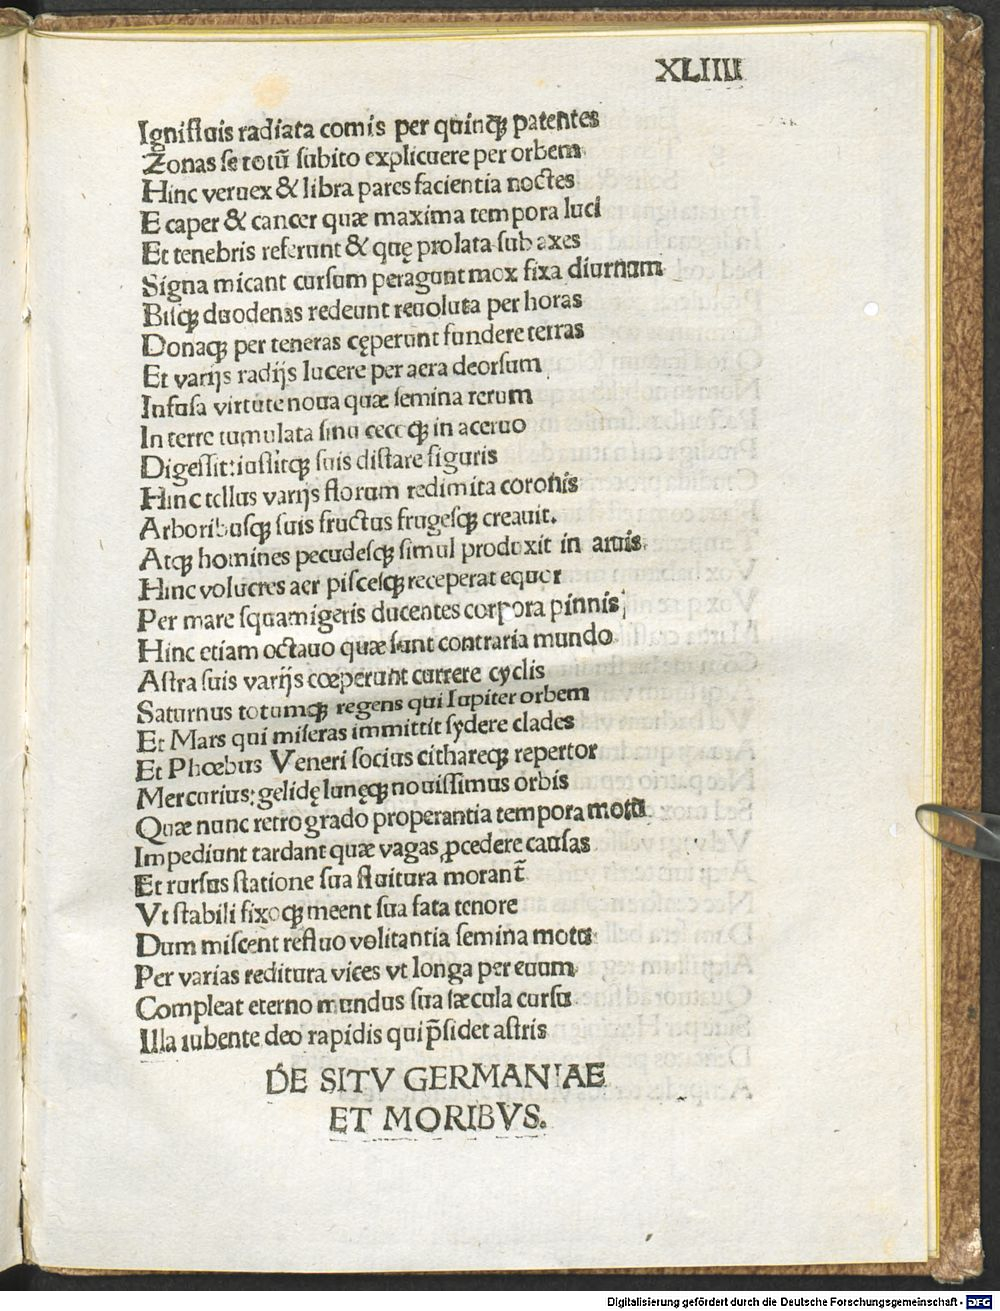 XLIIII
Ignifluis radiata comis per quinqꝫ patentes
Zonas se totū subito explicuere per orbem
Hinc veruex & libra pares facientia noctes
E caper & cancer quæ maxima tempora luci
Et tenebris referunt & quę prolata sub axes
Signa micant cursum peragunt mox fixa diurnum
Bisqꝫ duodenas redeunt reuoluta per horas
Donaqꝫ per teneras cęperunt fundere terras
Et varijs radijs lucere per aera deorsum
Infusa virtute noua quæ semina rerum
In terre tumulata sinu cecoqꝫ in aceruo
Digessit: iussitqꝫ suis distare figuris
Hinc tellus varijs florum redimita coronis
Arboribusqꝫ suis fructus frugesqꝫ creauit.
Atqꝫ homines pecudesqꝫ simul produxit in aruis
Hinc volucres aer piscesqꝫ receperat equor
Per mare squamigeris ducentes corpora pinnis
Hinc etiam octauo quæ sunt contraria mundo
Astra suis varijs cœperunt currere cyclis
Saturnus totumqꝫ regens qui Iupiter orbem
Et Mars qui miseras immittit sydere clades
Et Phœbus Veneri socius cithareqꝫ repertor
Mercurius: gelidę lunęqꝫ nouissimus orbis
Quæ nunc retrogrado properantia tempora motu
Impediunt tardant quæ vagas ꝓcedere causas
Et rursus statione sua fluitura morant̄
Vt stabili fixoqꝫ meent sua fata tenore
Dum miscent refluo volitantia semina motu
Per varias reditura vices vt longa per euum
Compleat eterno mundus sua sæcula cursu
Illa iubente deo rapidis qui p̄sidet astris
DE SITV GERMANIAE
ET MORIBVS.
Digitalisierung gefördert durch die Deutsche Forschungsgemeinschaft - DFG